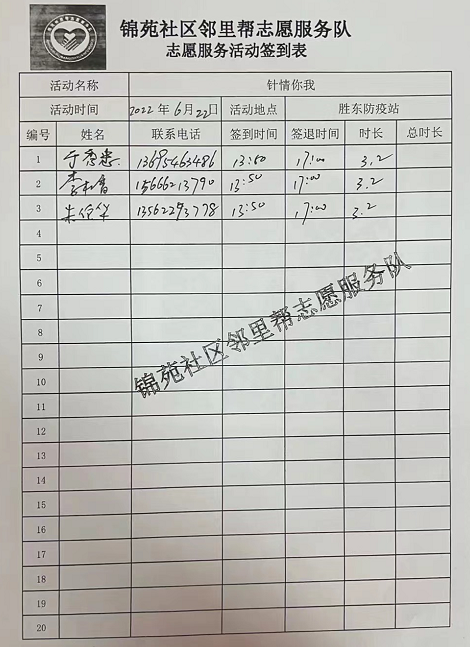 锦苑社区邻里帮志愿服务队
志愿服务活动签到表
活动名称 针情你我
活动时间 2022年6月22日 活动地点 胜东防疫站
编号 姓名 联系电话 签到时间 签退时间 时长 总时长
1 13695463486 13:50 17:00 3.2
2 15666213790 13:50 17:00 3.2
3 13562293778 13:50 17:00 3.2
4
5
6
7
8
9
10
11
12
13
14
15
16
17
18
19
20
锦苑社区邻里帮志愿服务队